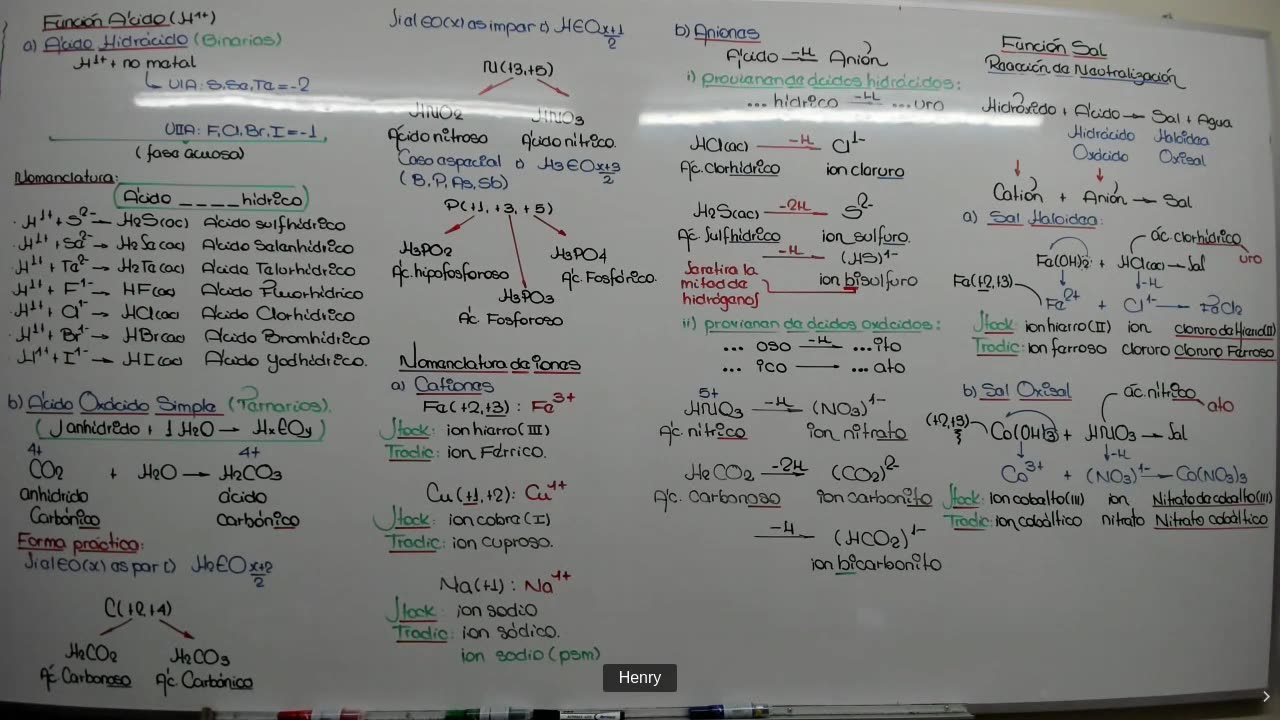 Función Ácido (H¹⁺)
a) Ácido Hidrácido (Binarios)
H¹⁺ + no metal
VIA: S, Se, Te = -2
VIIA: F, Cl, Br, I = -1
(fase acuosa)
Nomenclatura:
Ácido ____hídrico
· H¹⁺ + S²⁻ → H₂S(ac) Ácido sulfhídrico
· H¹⁺ + Se²⁻ → H₂Se(ac) Ácido Selenhídrico
· H¹⁺ + Te²⁻ → H₂Te(ac) Ácido Telorhídrico
· H¹⁺ + F¹⁻ → HF(ac) Ácido Fluorhídrico
· H¹⁺ + Cl¹⁻ → HCl(ac) Ácido Clorhídrico
· H¹⁺ + Br¹⁻ → HBr(ac) Ácido Bromhídrico
· H¹⁺ + I¹⁻ → HI(ac) Ácido yodhídrico.
b) Ácido Oxácido Simple (Ternarios).
(1 anhídrido + 1 H₂O → HxEOy)
4+ 4+
CO₂ + H₂O → H₂CO₃
anhídrido ácido
Carbónico carbónico
Forma práctica:
Si el EO(x) es par ⇒ H₂EO x+2/2
C(+2,+4)
H₂CO₂ H₂CO₃
Ác. Carbonoso Ác. Carbónico
Si el EO(x) es impar ⇒ HEO x+1/2
N(+3,+5)
HNO₂ HNO₃
Ácido nitroso Ácido nítrico.
Caso especial ⇒ H₃EO x+3/2
(B, P, As, Sb)
P(+1, +3, +5)
H₃PO₂ H₃PO₄
Ác. hipofosforoso Ác. Fosfórico.
H₃PO₃
Ác. Fosforoso
Nomenclatura de iones
a) Cationes
Fe(+2,+3) : Fe³⁺
Stock: ion hierro (III)
Tradic: ion Férrico.
Cu(+1,+2): Cu¹⁺
Stock: ion cobre (I)
Tradic: ion cuproso.
Na(+1) : Na¹⁺
Stock: ion sodio
Tradic: ion sódico.
ion sodio (psm)
b) Aniones
Ácido -H→ Anión
i) provienen de ácidos hidrácidos:
... hídrico -H→ ...uro
HCl(ac) -H→ Cl¹⁻
Ác. clorhídrico ion cloruro
H₂S(ac) -2H→ S²⁻
Ác. Sulfhídrico ion sulfuro.
-H→ (HS)¹⁻
Se retira la mitad de hidrógenos ion bisulfuro
ii) provienen de ácidos oxácidos:
... oso -H→ ...ito
... ico → ... ato
5+
HNO₃ -H→ (NO₃)¹⁻
Ác. nítrico ion nitrato
H₂CO₂ -2H→ (CO₂)²⁻
Ác. Carbonoso ion carbonito
-H→ (HCO₂)¹⁻
ion bicarbonito
Función Sal
Reacción de Neutralización
Hidróxido + Ácido → Sal + Agua
Hidrácido Haloidea
Oxácido Oxisal
Catión + Anión → Sal
a) Sal Haloidea:
ác. clorhídrico
uro
Fe(OH)₂ + HCl(ac) → Sal
Fe(+2,+3) -H
Fe²⁺ + Cl¹⁻ → FeCl₂
Stock: ion hierro (II) ion cloruro de Hierro(II)
Tradic: ion ferroso cloruro Cloruro Ferroso
b) Sal Oxisal
ác. nítrico
ato
(+2,+3) Co(OH)₃ + HNO₃ → Sal
-H
Co³⁺ + (NO₃)¹⁻ → Co(NO₃)₃
Stock: ion cobalto (III) ion Nitrato de cobalto (III)
Tradic: ion cobáltico nitrato Nitrato cobáltico
Henry